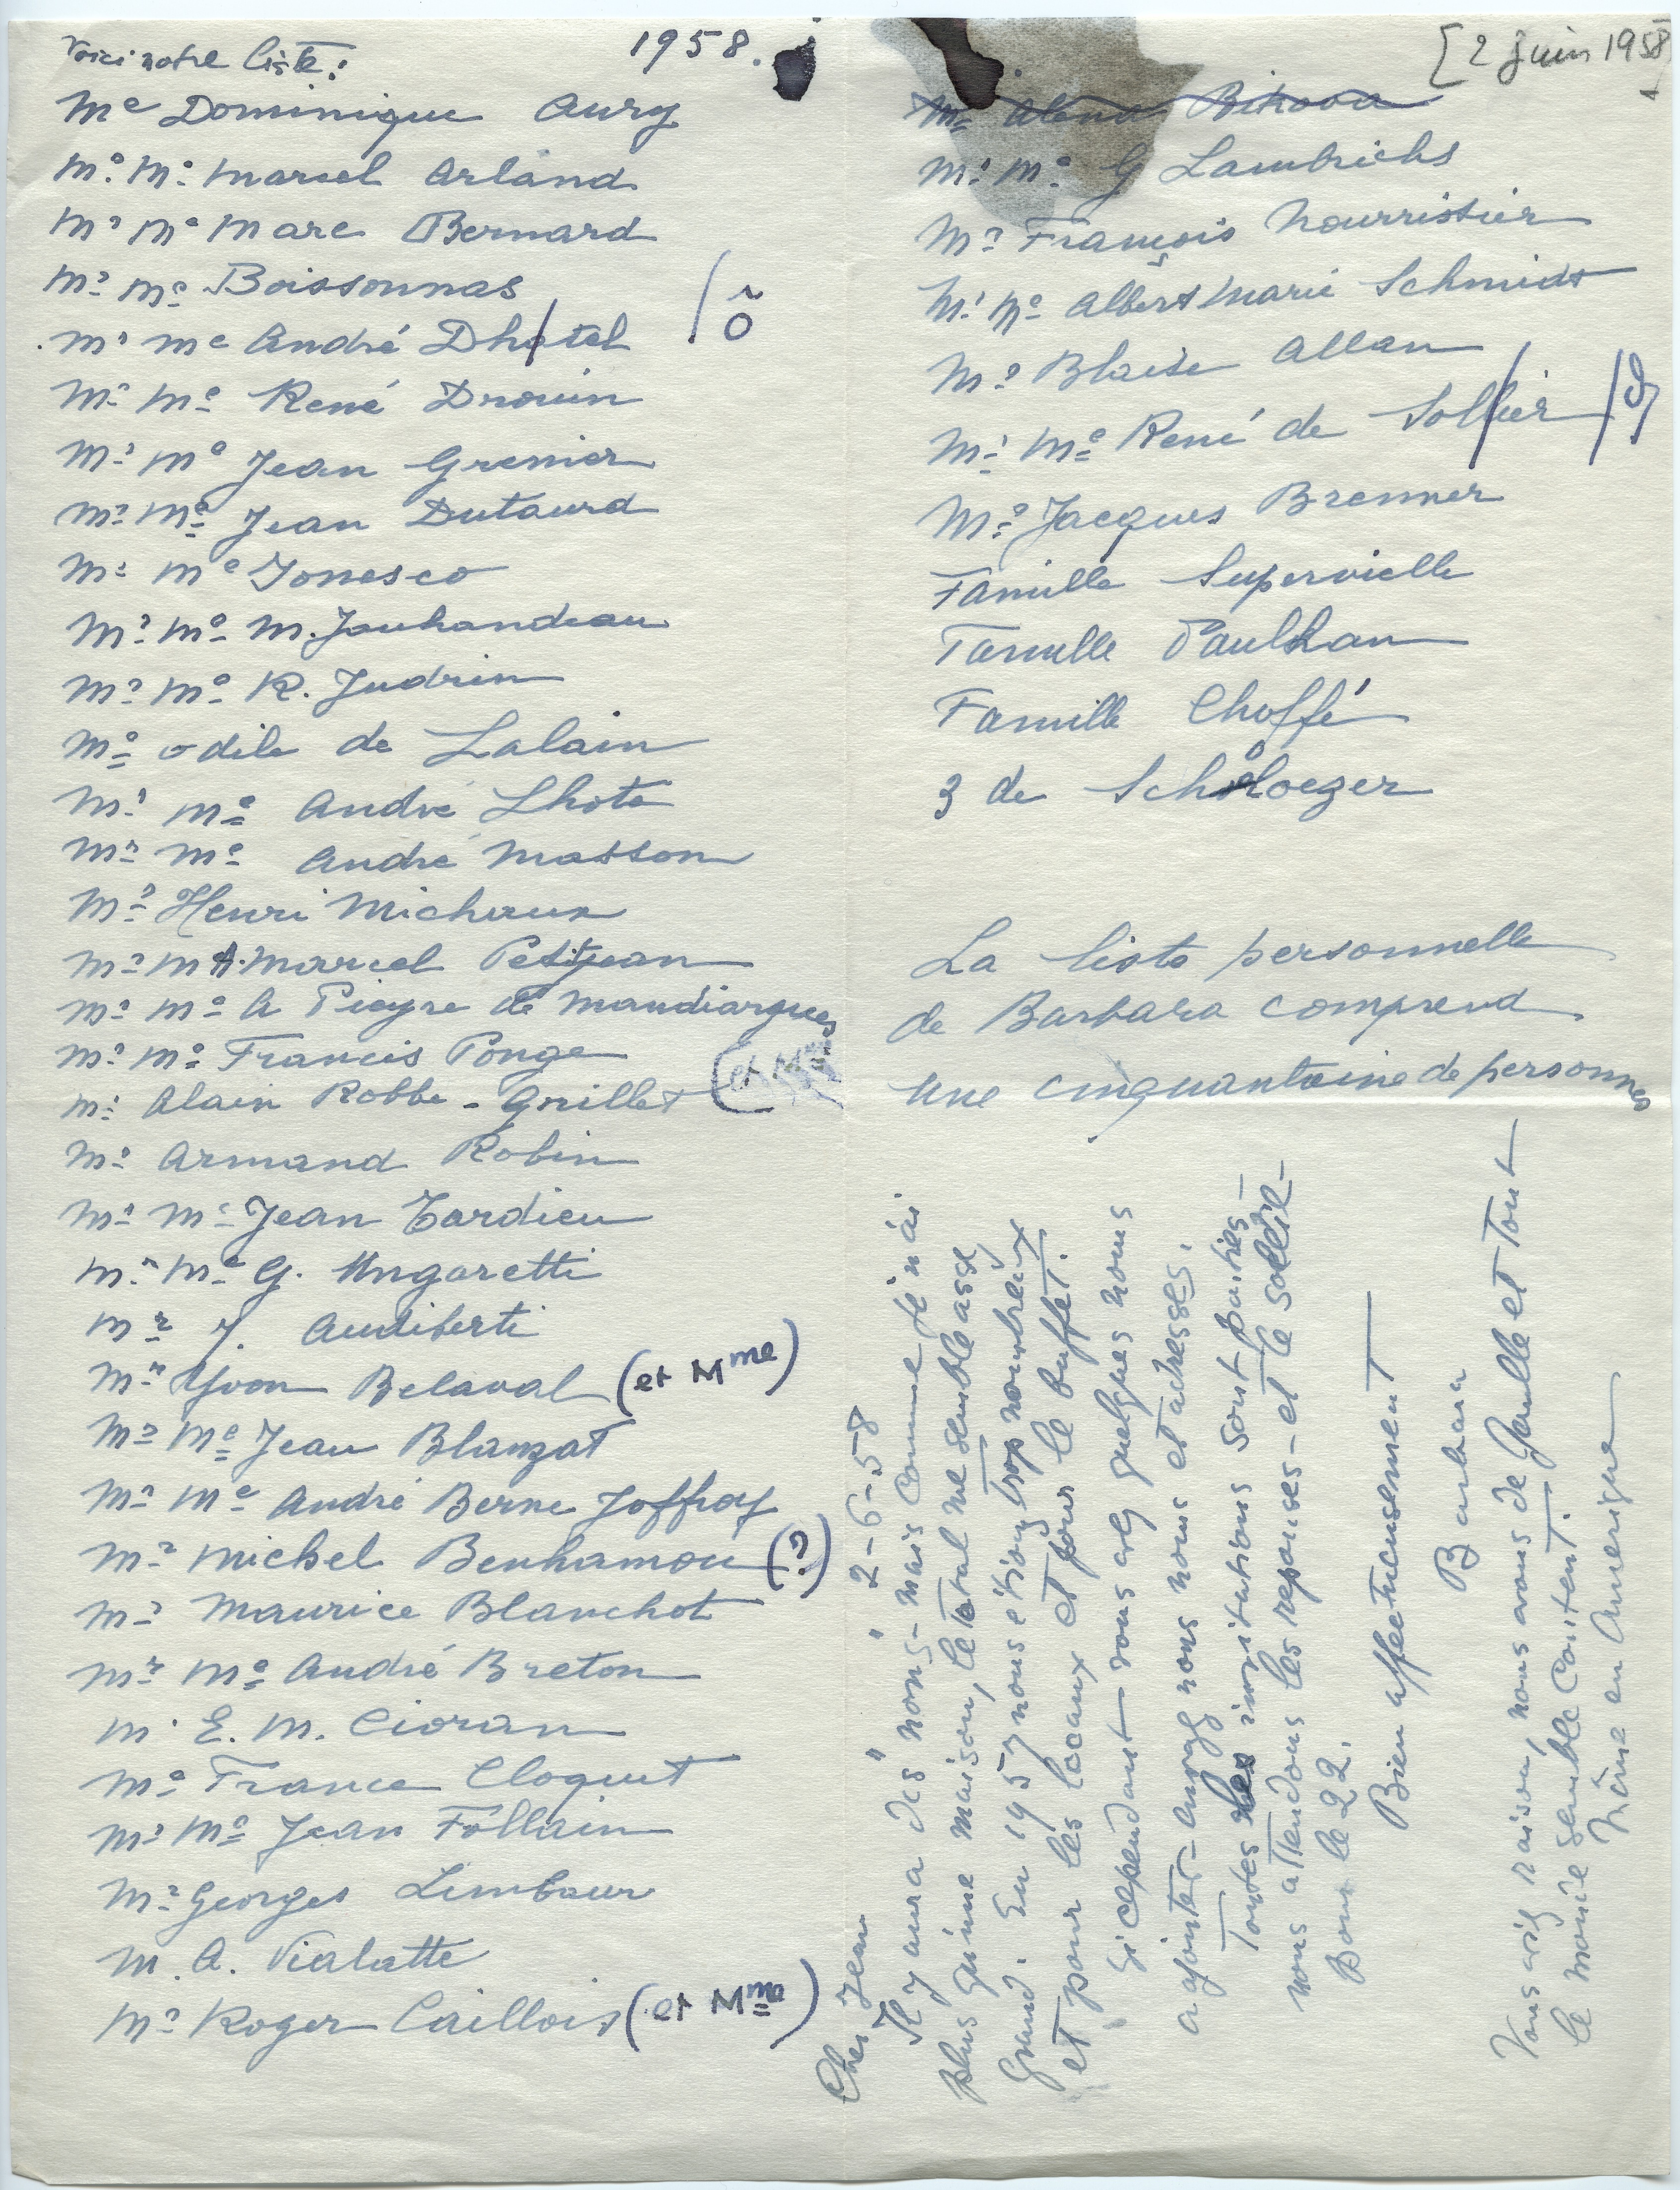 Voici notre liste : 1958.
Me Dominique Aury
Mr Me Marcel Arland
Mr Me Marc Bernard
Mr Me Boissonnas
Mr Me André Dhotel / ô
Mr Me René Drouin
Mr Me Jean Grenier
Mr Me Jean Dutourd
Mr Me Ionesco
Mr Me M. Jouhandeau
Mr Me R. Judrin
Me Odile de Lalain
Mr Me André Lhote
Mr Me André Masson
Mr Henri Michaux
Mr M A. Marcel Petitjean
Mr Me A Pieyre de Mandiargues
Mr Me Francis Ponge
Mr Alain Robbe-Grillet (et Mme
Mr Armand Robin
Mr Me Jean Tardieu
Mr Me G. Ungaretti
Mr J. Audiberti
Mr Yvon Belaval (et Mme)
Mr Me Jean Blanzat
Mr Me André Berne Joffroy
Mr Michel Benhamou (?)
Mr Maurice Blanchot
Mr Me André Breton
M. E. M. Cioran
Me France Cloquet
Mr Me Jean Follain
Mr Georges Limbour
M. A. Vialatte
Mr Roger Caillois (et Mme)
[2 juin 1958
Me Alena Bikova
Mr Me G Lambrichs
Mr François Nourrissier
Mr Me Albert Marie Schmidt
Mr Blaise Allan
Mr Me René de Sollier /
Mr Jacques Brenner
Famille Supervielle
Famille Paulhan
Famille Choffé
3 de Schloezer
La liste personnelle
de Barbara comprend
une cinquantaine de personnes
Cher Jean 2-6-58
Il y aura des "nons" - mais comme je n'ai
plus qu'une maison, le total me semble assez
grand. En 1957 nous étions trop nombreux
et pour les locaux et pour le buffet.
Si cependant vous avez quelques noms
a ajouter - envoyez nous noms et adresses.
Toutes les invitations sont parties -
nous attendons les reponses - et le soleil -
Pour le 22.
Bien affectueusement
Barbara
Vous aviez raison, nous avons de Gaulle et tout
le monde semble content.
Même en Amerique